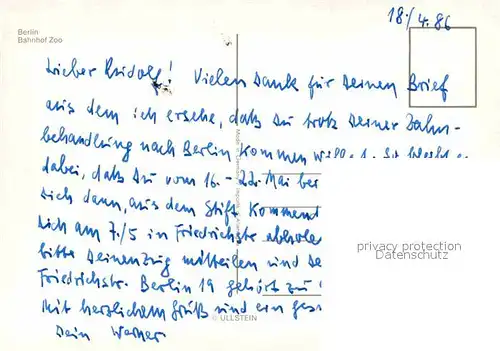 18./4.86
Berlin
Bahnhof Zoo
Lieber Rudolf! Vielen Dank für Deinen Brief
aus dem ich ersehe, daß Du trotz Deiner Zahn-
behandlung nach Berlin kommen willst. Es bleibt
dabei, daß Du vom 16. - 22. Mai
Dich dann, aus dem Stift kommend
Dich am 7./5 in Friedrichstr. abholen
bitte Deinen Zug mitteilen und
Friedrichstr. Berlin 19 gehört zu
Mit herzlichem Gruß und ein
Dein Werner
© ULLSTEIN
privacy protection
Datenschutz